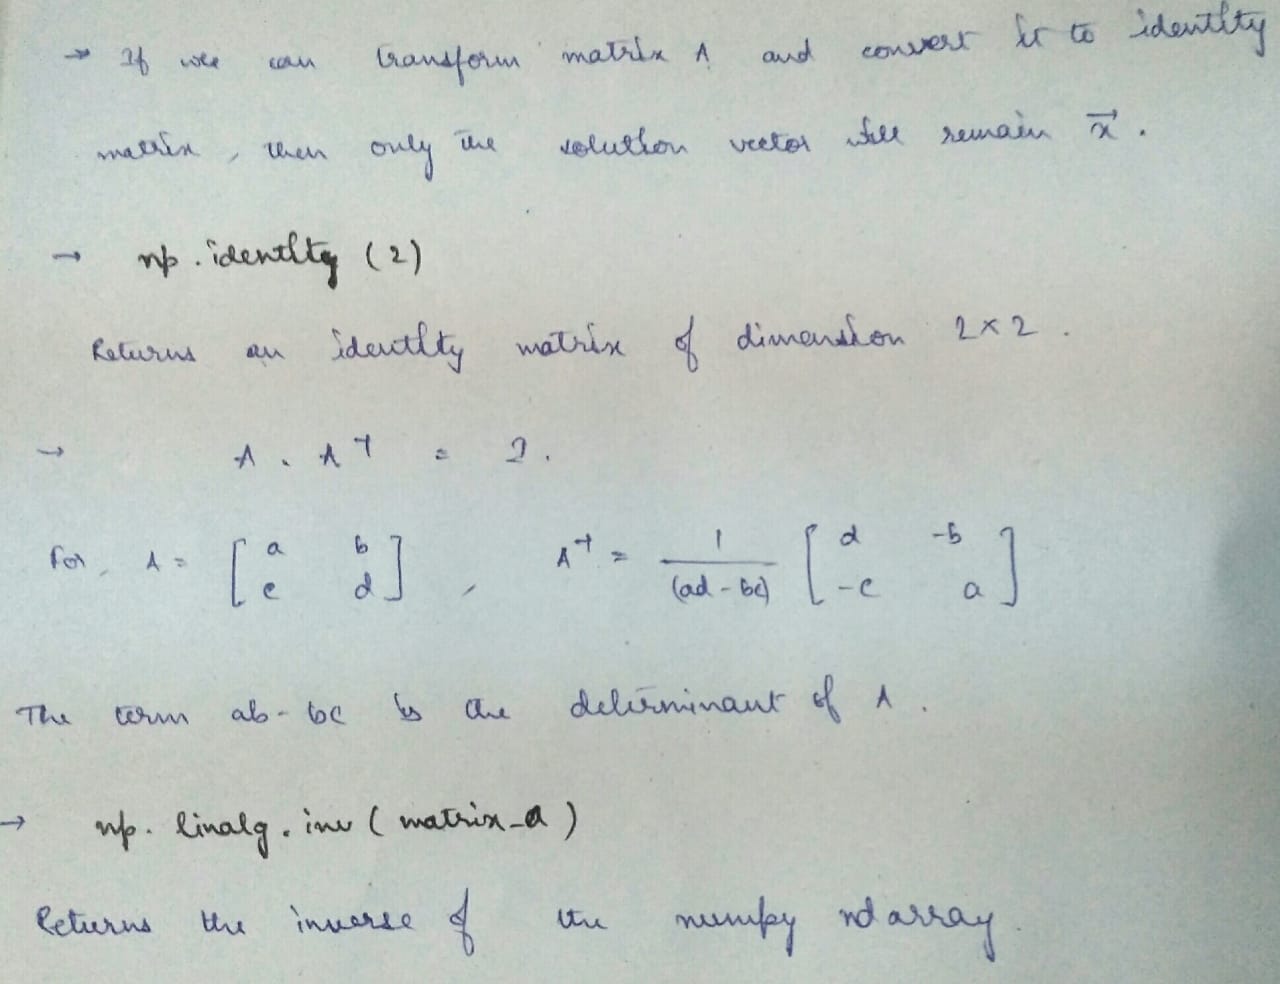 → If we can transform matrix A and convert it to identity
matrix, then only the solution vector will remain x⃗.
→ np.identity (2)
Returns an identity matrix of dimension 2×2.
→ A . A⁻¹ = I.
For, A = [a b; c d], A⁻¹ = 1/(ad - bc) [d -b; -c a]
The term ab - bc is the determinant of A.
→ np.linalg.inv(matrix_a)
Returns the inverse of the numpy ndarray.